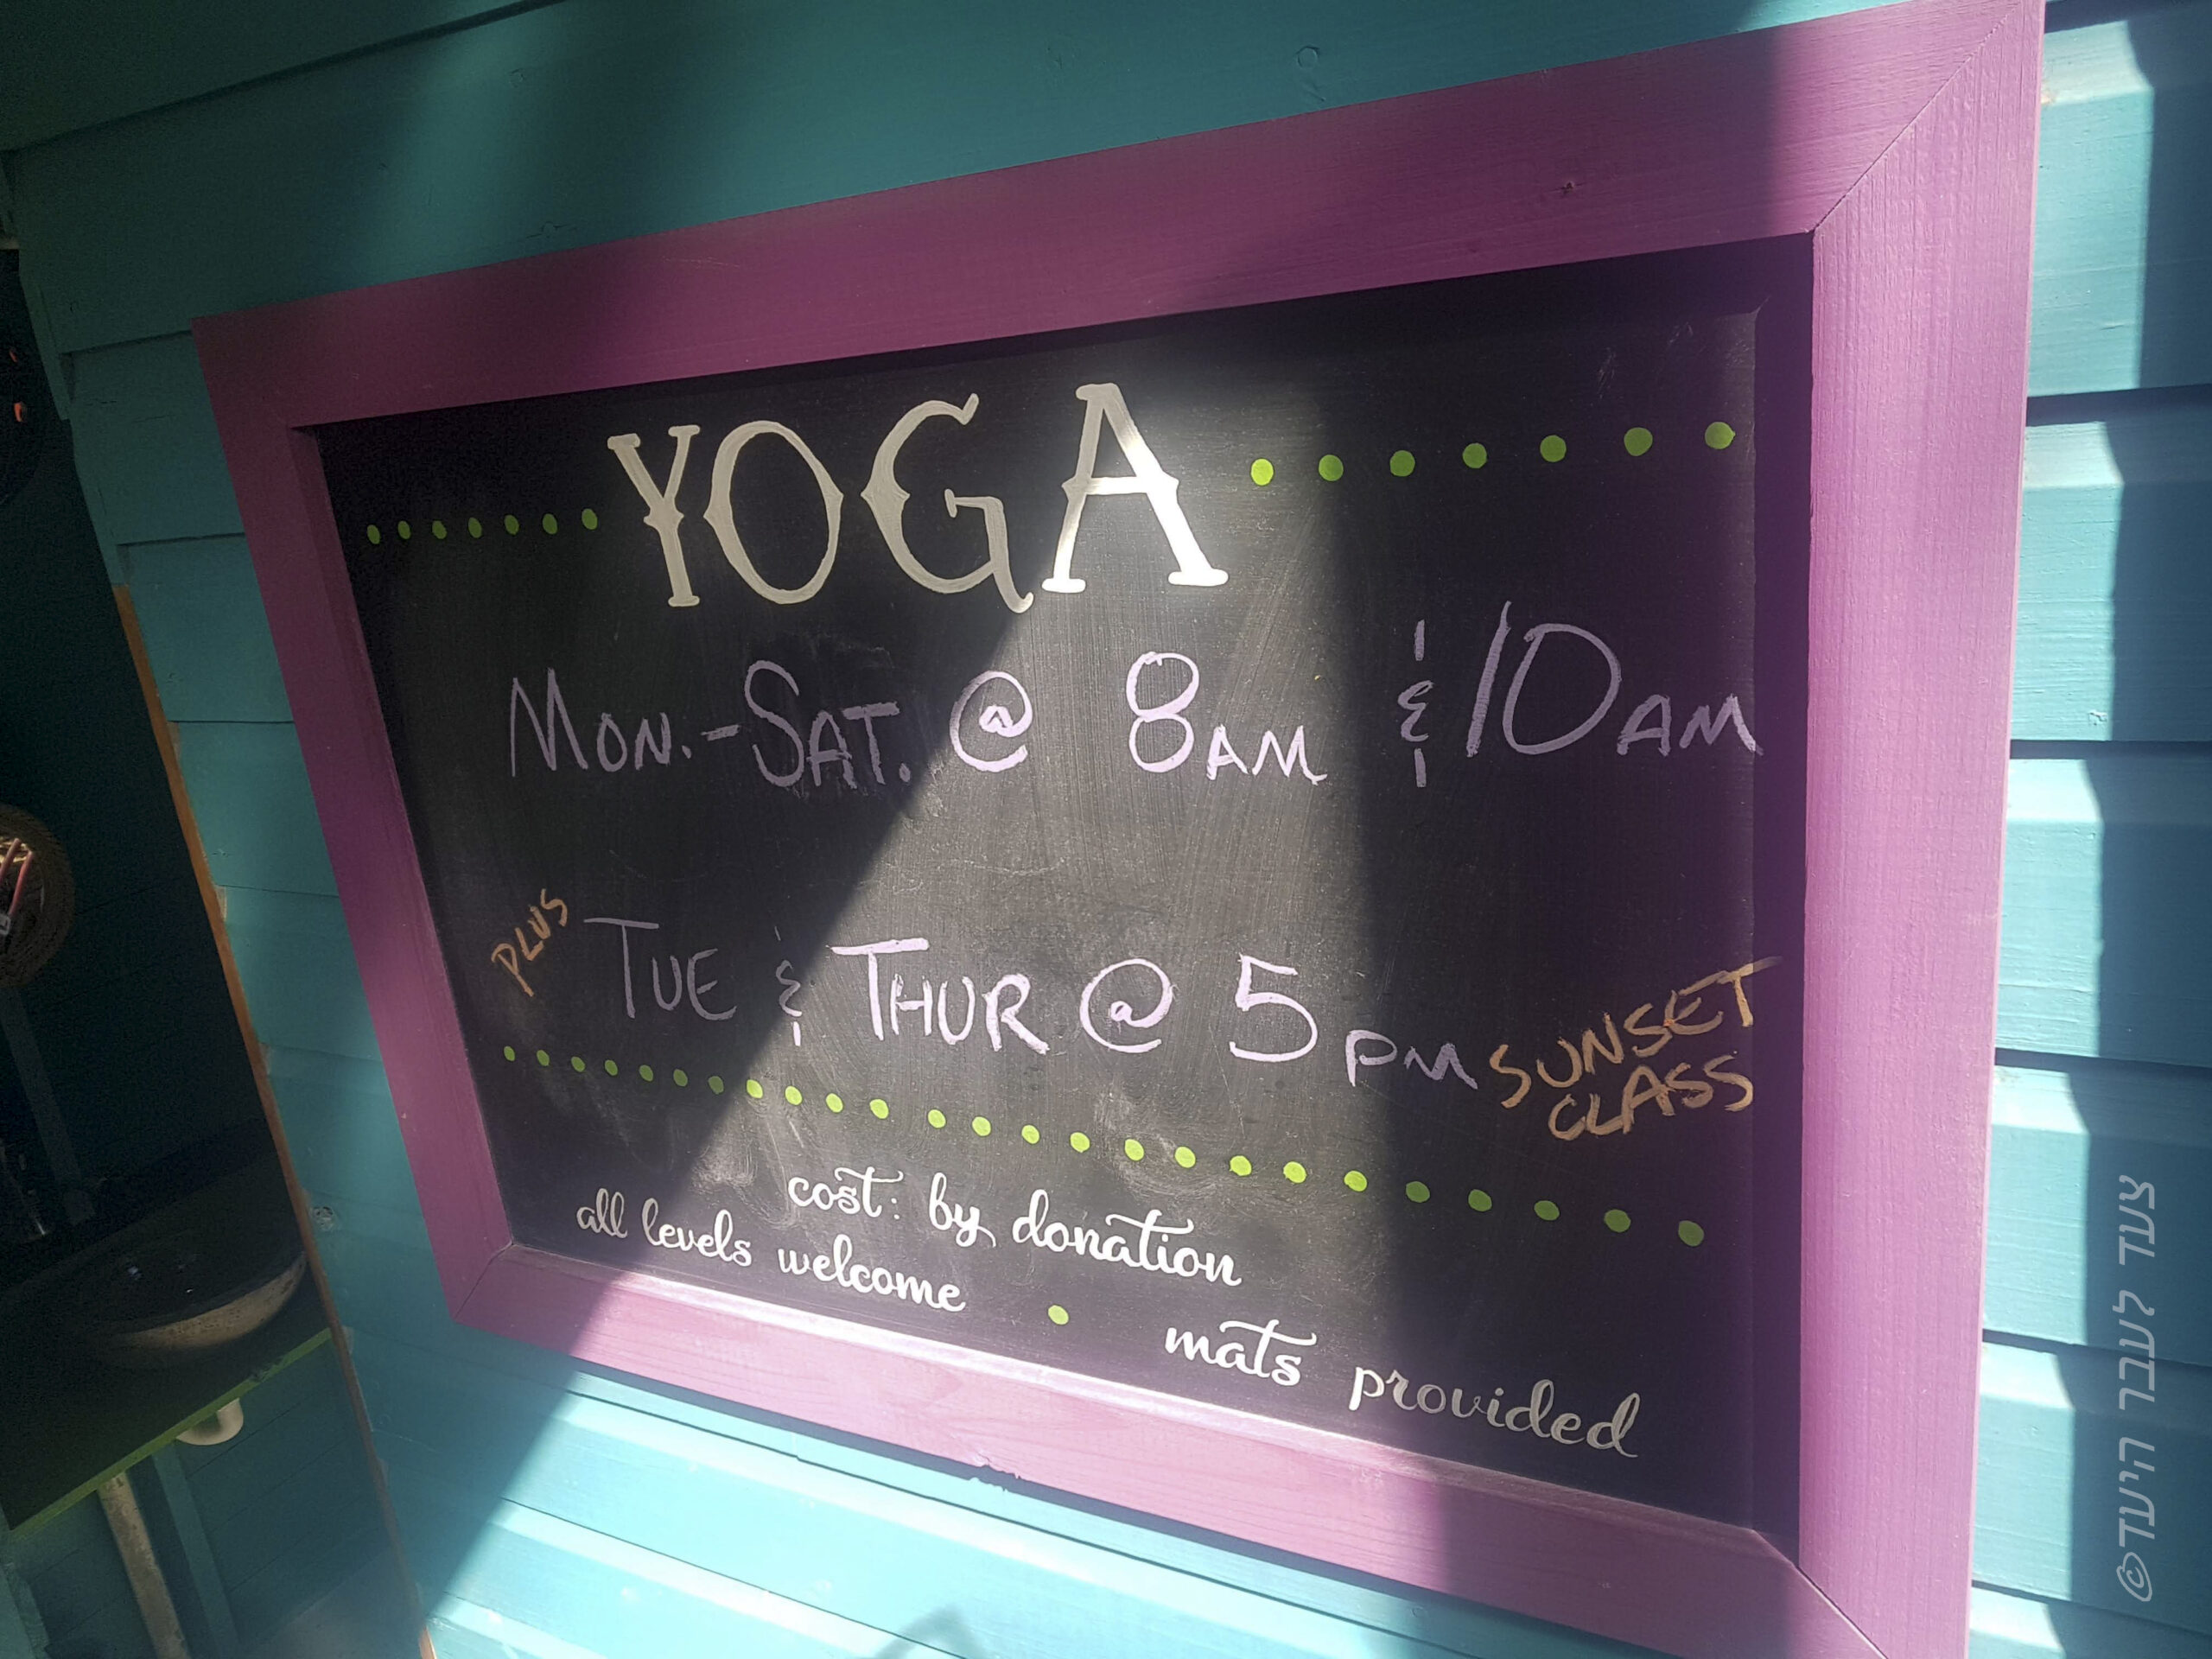 YOGA
MON.-SAT. @ 8AM & 10AM
PLUS TUE & THUR @ 5PM SUNSET CLASS
cost: by donation
all levels welcome • mats provided
©צעד לעבר היעד